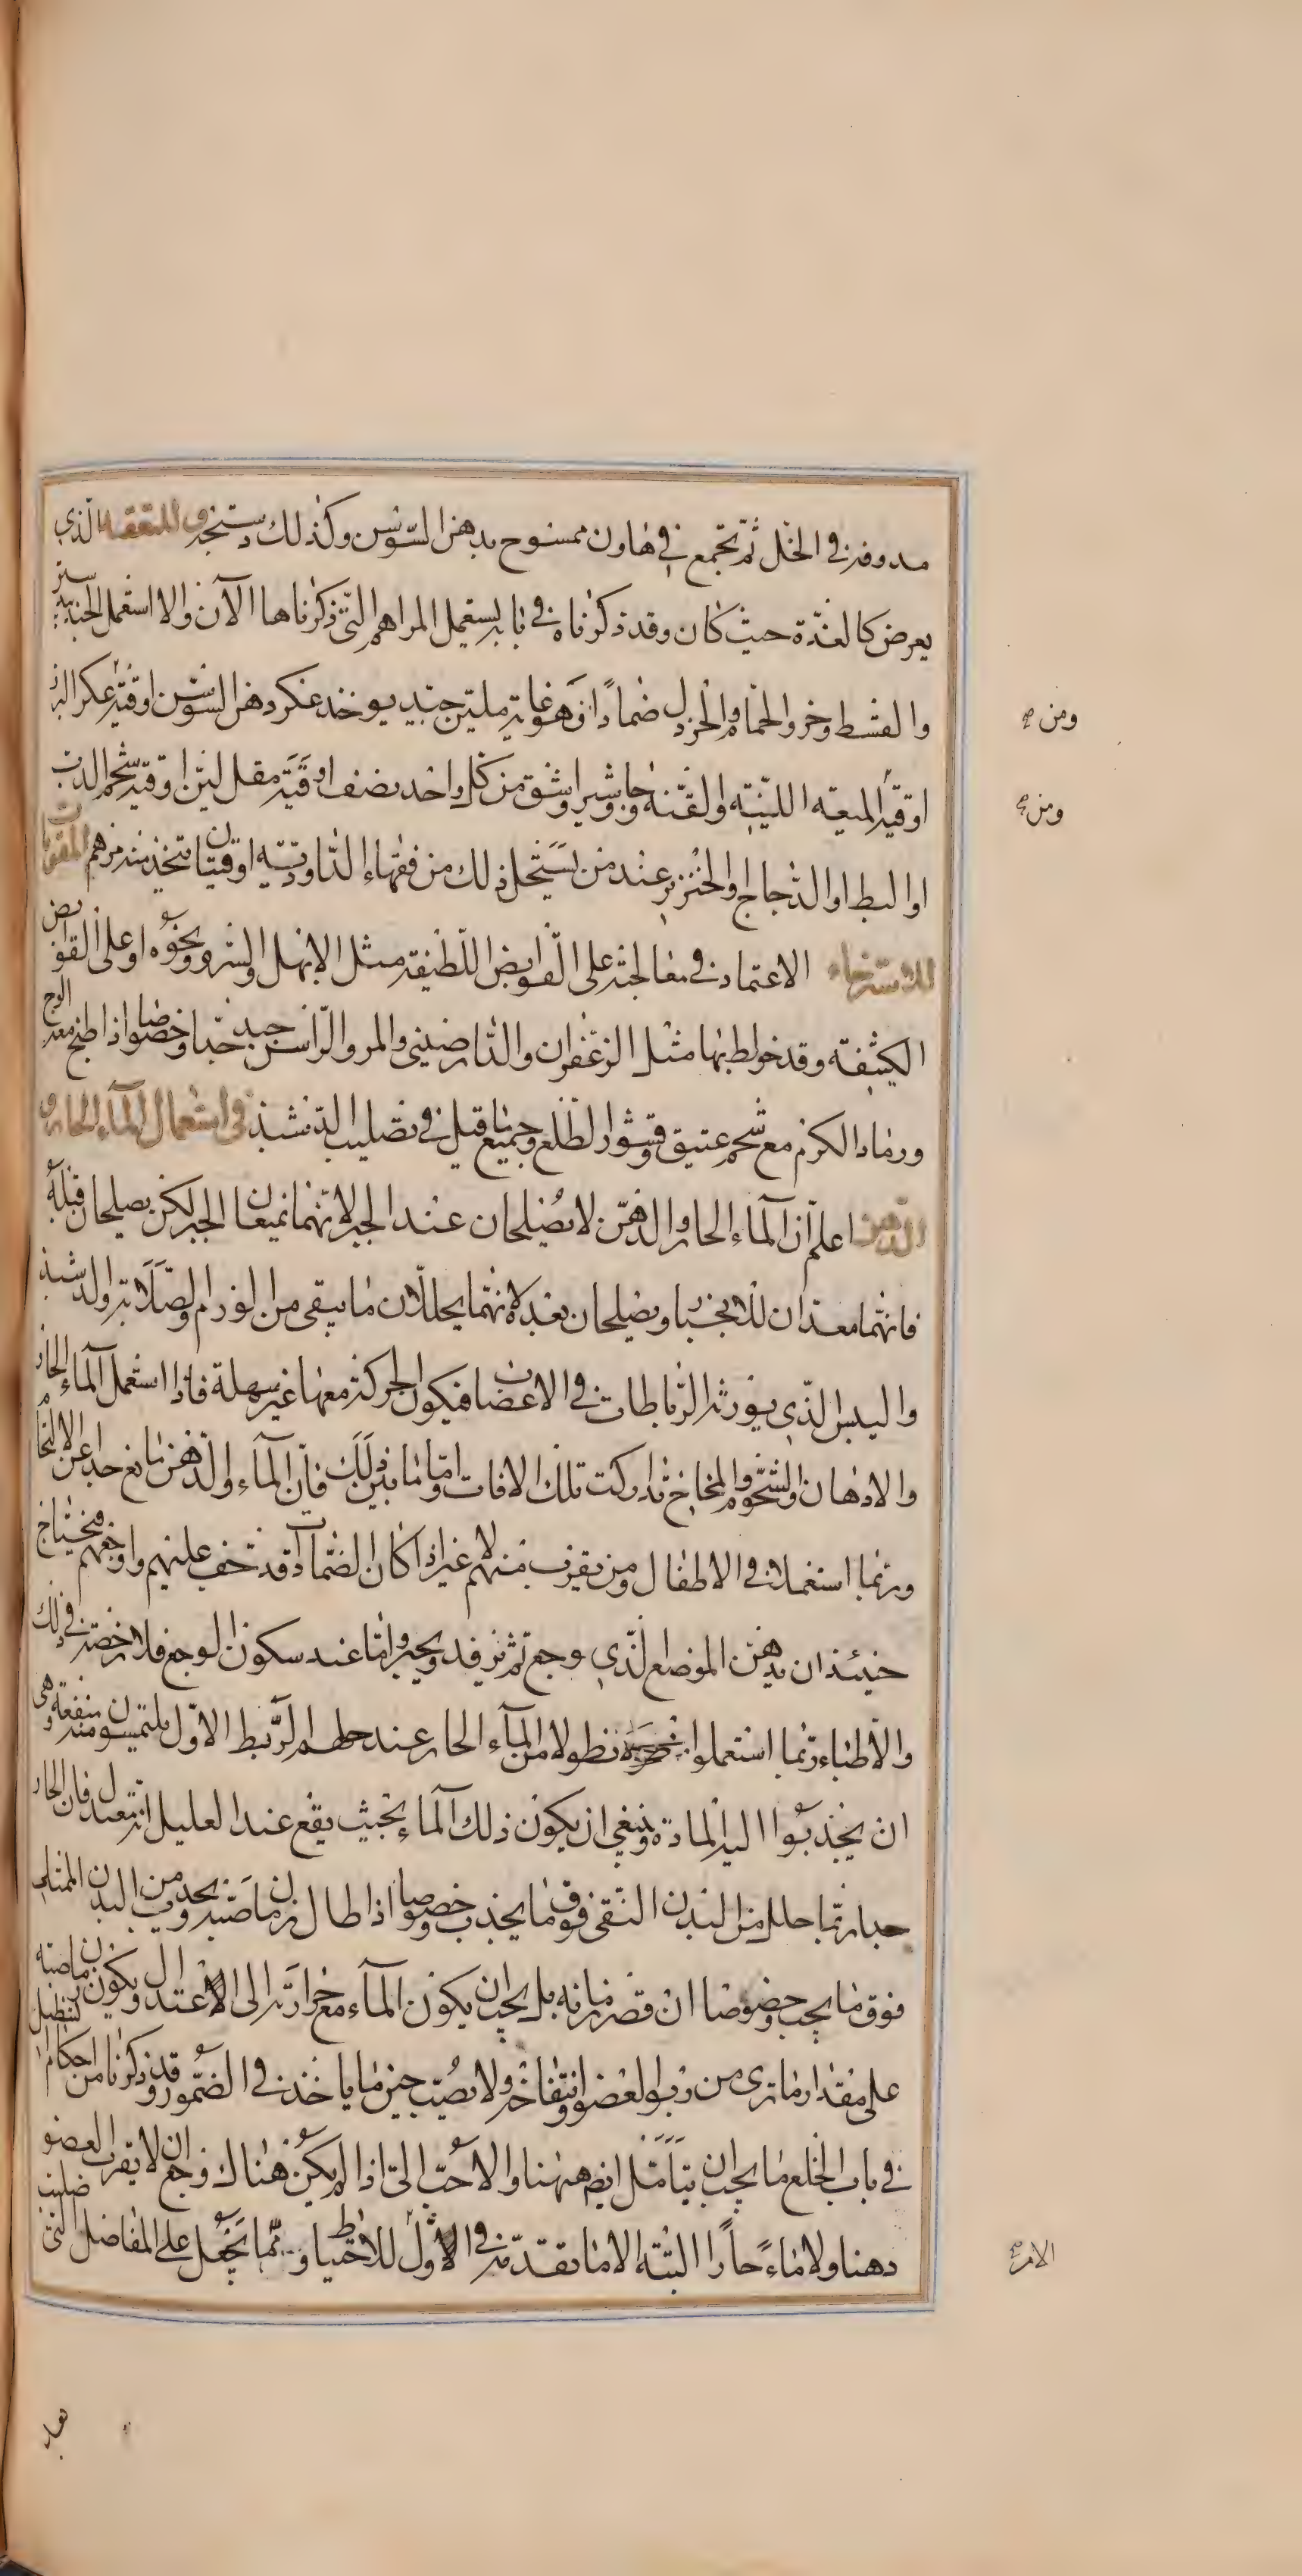 مدوفة في الخل ثم تجمع في هاون ممسوح بدهن السوسن وكذلك دستجة والمتعقد الذي
يعرض كالغدة حيث كان وقد ذكرناه في بابه يستعمل المراهم التي ذكرناها الآن والا استعمل الجندبيدستر
والقسط وخرو الحمام والخردل ضمادا فهو غاية ملين جيد يوخذ عكر دهن السوسن اوقية عكر البزر
اوقية الميعة اللينة والقنة وجاوشير واشق من كل واحد نصف اوقية مقل لين اوقية شحم الدب
او البط او الدجاج او الخنزير عند من يستحل ذلك من فقهاء الداودية اوقيتان تتخذ منه مرهم المقويات
للاسترخاء الاعتماد في معالجته على القوابض اللطيفة مثل الابهل والسرو ونحوه او على القوابض
الكثيفة وقد خولط بها مثل الزعفران والدارصيني والمر والراسن جيد جدا وخصوصا اذا طبخ معه الوج
ورماد الكرم مع شحم عتيق وقشور الطلع وجميع ما قيل في تصليب الدشبذ في استعمال الماء الحار و
الدهن اعلم ان الماء الحار والدهن لا يصلحان عند الجبر لانهما يمنعان الجبر لكن يصلحان قبله
فانهما معدان للانجبار ويصلحان بعده لانهما يحللان ما يبقى من الورم وصلابة الدشبذ
واليبس الذي يورثه الرباطات في الاعضا فيكون الحركة معها غير سهلة فاذا استعمل الماء الحار
والادهان والشحوم والمخاخ تداركت تلك الافات واما ما بين ذلك فان الماء والدهن مانع جدا عن الالتحام
وربما استعملا في الاطفال ومن يقرب منهم لا غير اذا كان الضمادات قد تجف عليهم واوجعهم فيحتاج
حينئذ ان يدهن الموضع الذي وجع ثم يرفد ويجبر واما عند سكون الوجع فلا رخصة في ذلك
والاطباء ربما استعملوا نطولا من الماء الحار عند حلهم الربط الاول يلتمسون منفعة وهي
ان يجذبوا اليه المادة وينبغي ان يكون ذلك الماء بحيث يقع عند العليل انه معتدل فان الحار
جدا ربما حلل من البدن النقي فوق ما يجذب وخصوصا اذا طال زمان صبه ويجذب من البدن الممتلي
فوق ما يجب وخصوصا ان قصر زمانه بل يجب ان يكون الماء مع حرارته الى الاعتدال ويكون زمان صبه
على مقدار ما ترى من ربو العضو وانتفاخه ولا يصب حين ما ياخذ في الضمور وقد ذكرنا من احكام التنطيل
في باب الخلع ما يجب ان يتامل ايضا ههنا والاحب الي اذا لم يكن هناك وجع ان لا يقرب العضو
دهنا ولا ماء حارا البتة الا ما تقدمته في الاول للاحتياط و مما يجعل على المفاصل التي
ومن صح
ومن صح